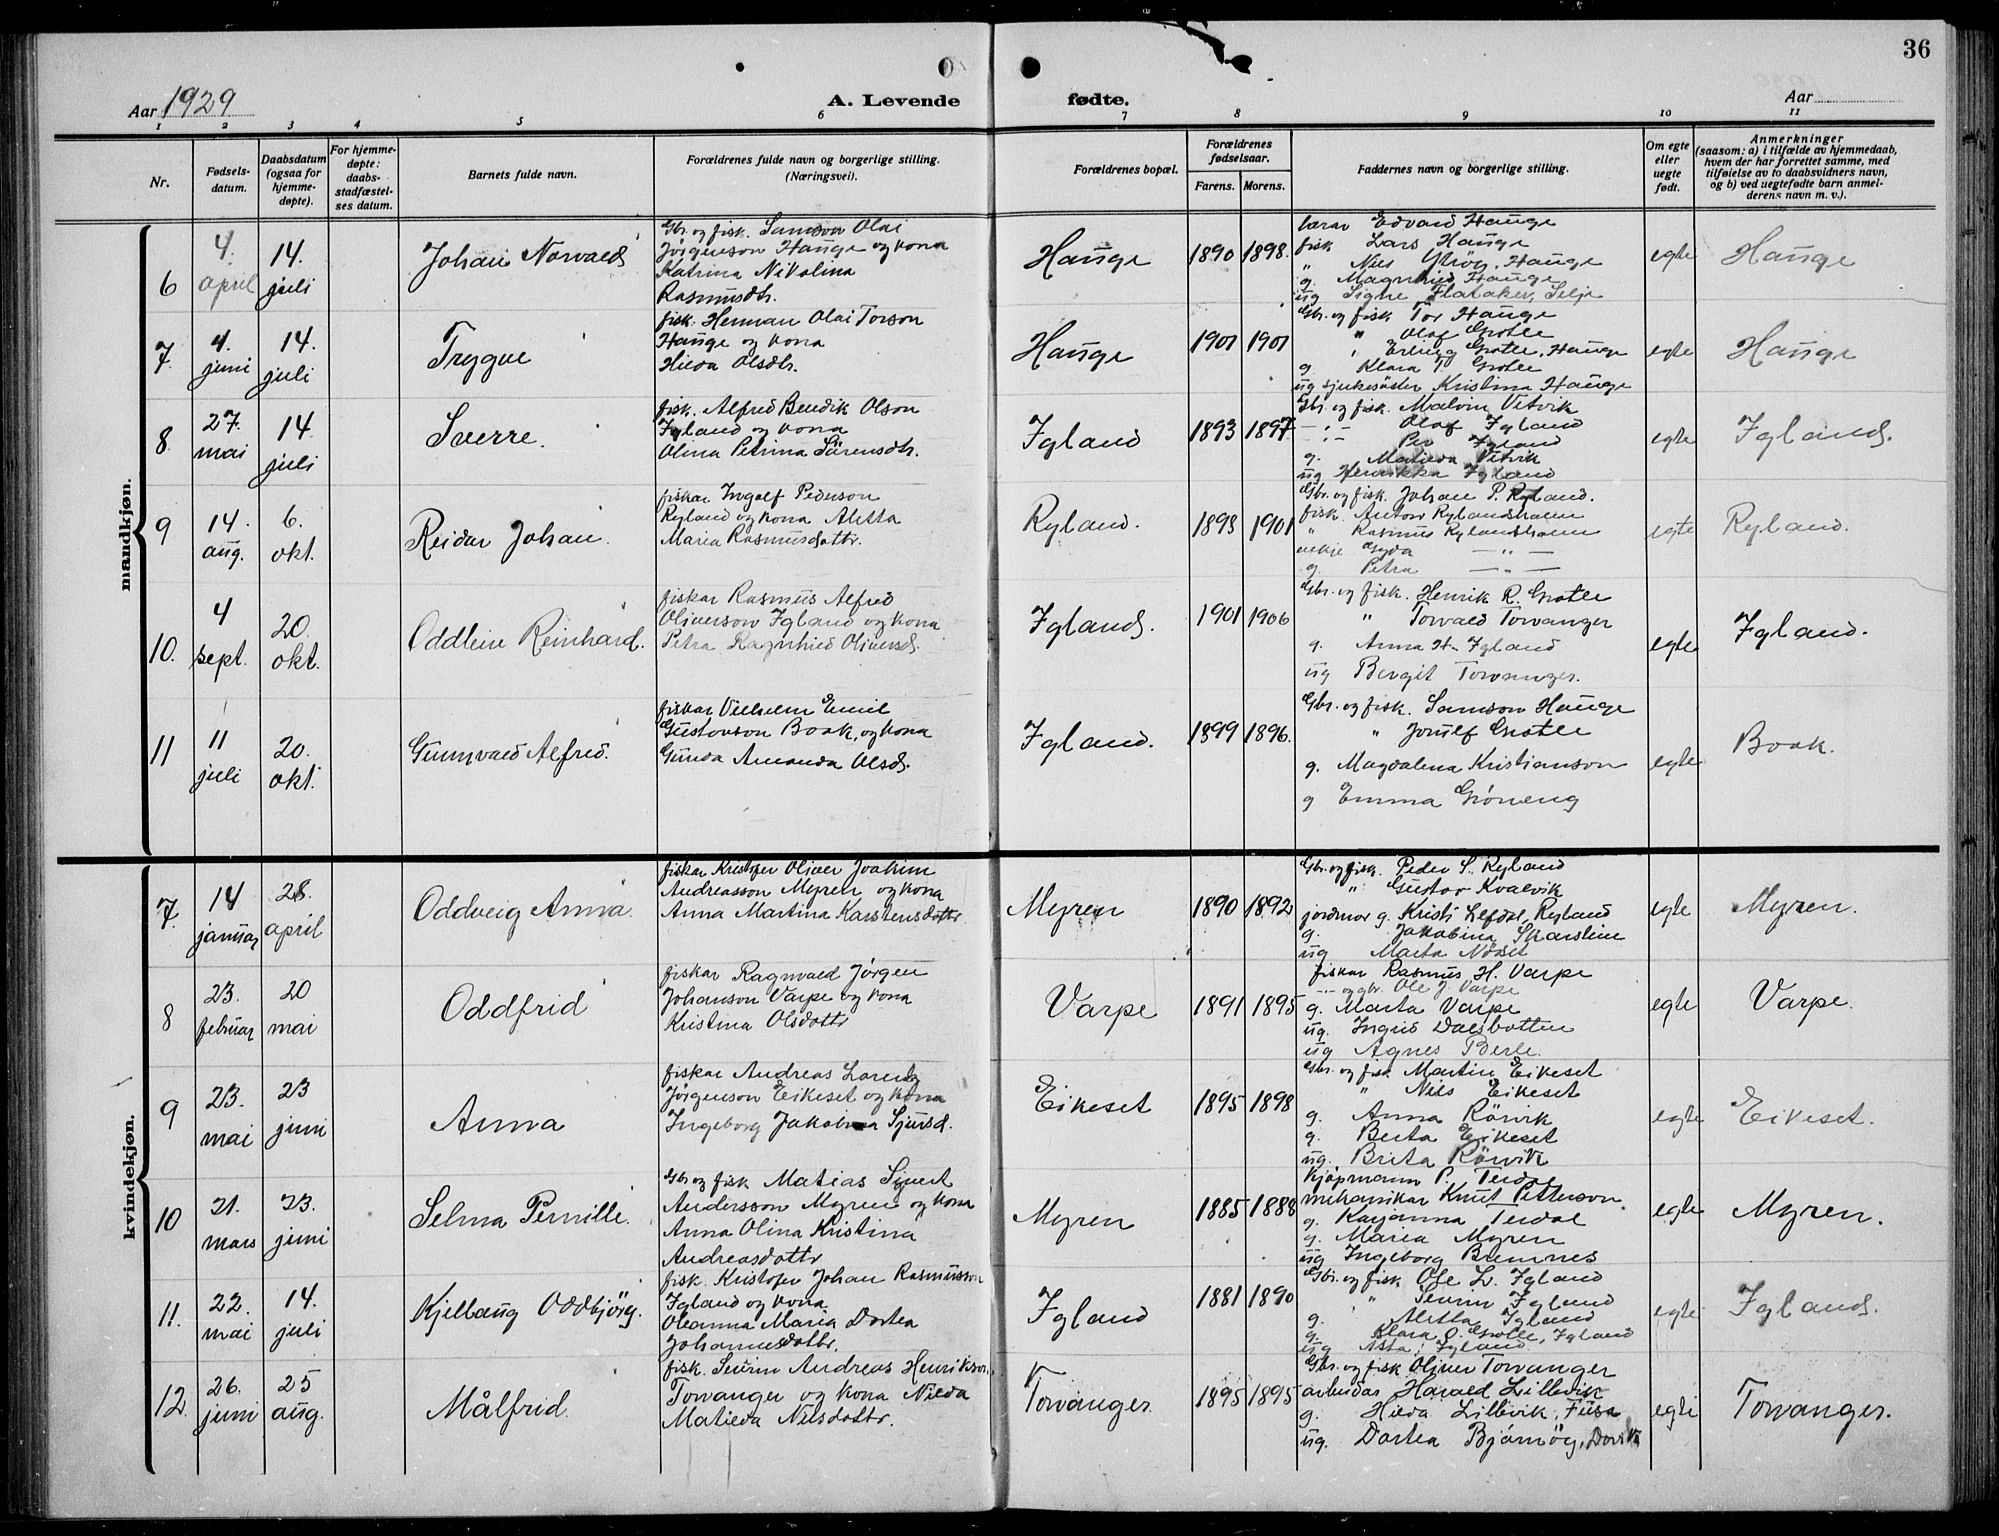 36
Aar 1929
A. Levende fødte.
Aar
1 2 3 4 5 6 7 8 9 10 11
Nr.
Fødsels-
datum.
Daabsdatum
(ogsaa for
hjemme-
døpte).
For hjemme-
døpte:
daabs-
stadfæstel-
ses datum.
Barnets fulde navn.
Forældrenes fulde navn og borgerlige stilling.
(Næringsvei).
Forældrenes bopæl.
Forældrenes
fødselsaar.
Farens. Morens.
Faddernes navn og borgerlige stilling.
Om egte
eller
uegte
født.
Anmerkninger
(saasom: a) i tilfælde av hjemmedaab,
hvem der har forrettet samme, med
tilføielse av to daabsvidners navn,
og b) ved uegtefødte barn anmel-
derens navn m. v.).
mandkjøn.
6
4.
april
14.
juli
Johan Norvald
Gbr. og fisk. Samson Olai
Jörgenson Hauge og kona
Katrina Nikolina
Rasmusdtr.
Hauge
1890 1898.
lærar Edvard Hauge
fisk Lars Hauge
" Nils Hauge
g. Magnhild Hauge
ug Signe Flataker, Selje
egte
Hauge
7.
4.
juni
14.
juli
Trygve
fisk. Herman Olai Torson
Hauge og kona
Hilda Olsdtr.
Hauge
1901 1901
Gbr. og fisk Tor Hauge
" Olaf Grotle
" Erling Grotle, Hauge
g. Klara T. Grotle
ug sjukesöster Kristina Hauge
egte
Hauge
8.
27.
mai
14.
juli
Sverre.
fisk. Alfred Bendik Olson
Igland og kona
Olina Petrina Sörensdtr.
Igland
1893 1897
Gbr. og fisk. Malvin Vetvik
-:- Olaf Igland
Per Igland
g. Matilda Vetvik
ug Henrikka Igland
egte
Igland.
9
14.
aug.
6.
okt.
Reidar Johan.
fiskar Ingolf Pederson
Ryland og kona Aletta
Maria Rasmusdottr.
Ryland.
1893 1901
Gbr. og fisk. Johan P. Ryland.
fisk. Anton Rylandsholm
" Rasmus Rylandsholm
enkje Gyda — " —
g. Petra — " —
egte
Ryland.
10.
4
sept.
20.
okt.
Oddleiv Reinhard.
fiskar Rasmus Alfred
Oliverson Igland og kona
Petra Ragnhild Oliversd.
Igland.
1901 1906
Gbr. og fisk. Henrik R. Grotle
" Torvald Torvanger
g. Anna H. Igland
ug Bergit Torvanger.
egte
Igland.
11
11
juli
20.
okt.
Gunnvald Alfred.
fiskar Vilhelm Emil
Gustavson Book, og kona
Gunda Amanda Olsd.
Igland.
1899 1896.
Gbr. og fisk. Samson Hauge
" Jonulf Grotle
g. Magdalena Kristianson
g Emma Gröneng
egte
Book.
kvindekjøn.
7.
14
januar
28.
april
Oddveig Anna.
fiskar Kristofer Oliver Joakim
Andreasson Myren og kona
Anna Martina Karstensdottr.
Myren
1890 1892
Gbr. og fisk. Peder S. Ryland
" Gustav Kvalvik
jordmor g. Kristi Lefdal, Ryland
g. Jakobina Skarstein
ug Marta Nöset
egte
Myren.
8
23.
februar
20
mai
Oddfrid
fiskar Ragnvald Jörgen
Johanson Varpe og kona
Kristina Olsdottr
Varpe
1891 1895
fiskar Rasmus H. Varpe
—"— og gbr. Ole J. Varpe
g. Marta Varpe
ug. Ingrid Dalsbotten
ug Agnes Berle.
egte
Varpe.
9
23.
mai
23
juni
Anna
fiskar Andreas Lorentz
Jörgenson Eikeset og kona
Ingeborg Jakobina Sjursd.
Eikeset
1895 1898
Gbr. og fisk. Martin Eikeset
" Nils Eikeset
g. Anna Rörvik
g. Berta Eikeset
ug. Brita Rörvik
egte
Eikeset.
10
21.
mars
23.
juni
Selma Pernille.
Gbr og fisk Matias Sivert
Andersson Myren og kona
Anna Olina Kristina
Andreasdottr
Myren
1885 1888
Kjöpmann P. Terdal
mekanikar Knut Petterson
g. Karjanna Terdal
g. Maria Myren
ug Ingeborg Bremnes
egte
Myren.
11.
22.
mai
14.
juli
Kjellaug Oddbjörg.
fisk. Kristofer Johan Rasmusson
Igland og kona
Oleanna Maria Dortea
Johannesdottr.
Igland
1881 1890
Gbr. og fisk Ole L. Igland
" Severin Igland
g. Aletta Igland
g. Klara O. Grotle, Igland
ug Asta Igland
egte
Igland.
12.
26.
juni
25
aug.
Målfrid.
fisk. Severin Andreas Henrikson
Torvanger og kona Nilda
Matilda Nilsdottr.
Torvanger
1895 1895
Gbr. og fisk Oliver Torvanger
arbeidar Harald Lillevik
g. Hilda Lillevik, Fusa
ug. Dortea Björnöy,
egte
Torvanger.